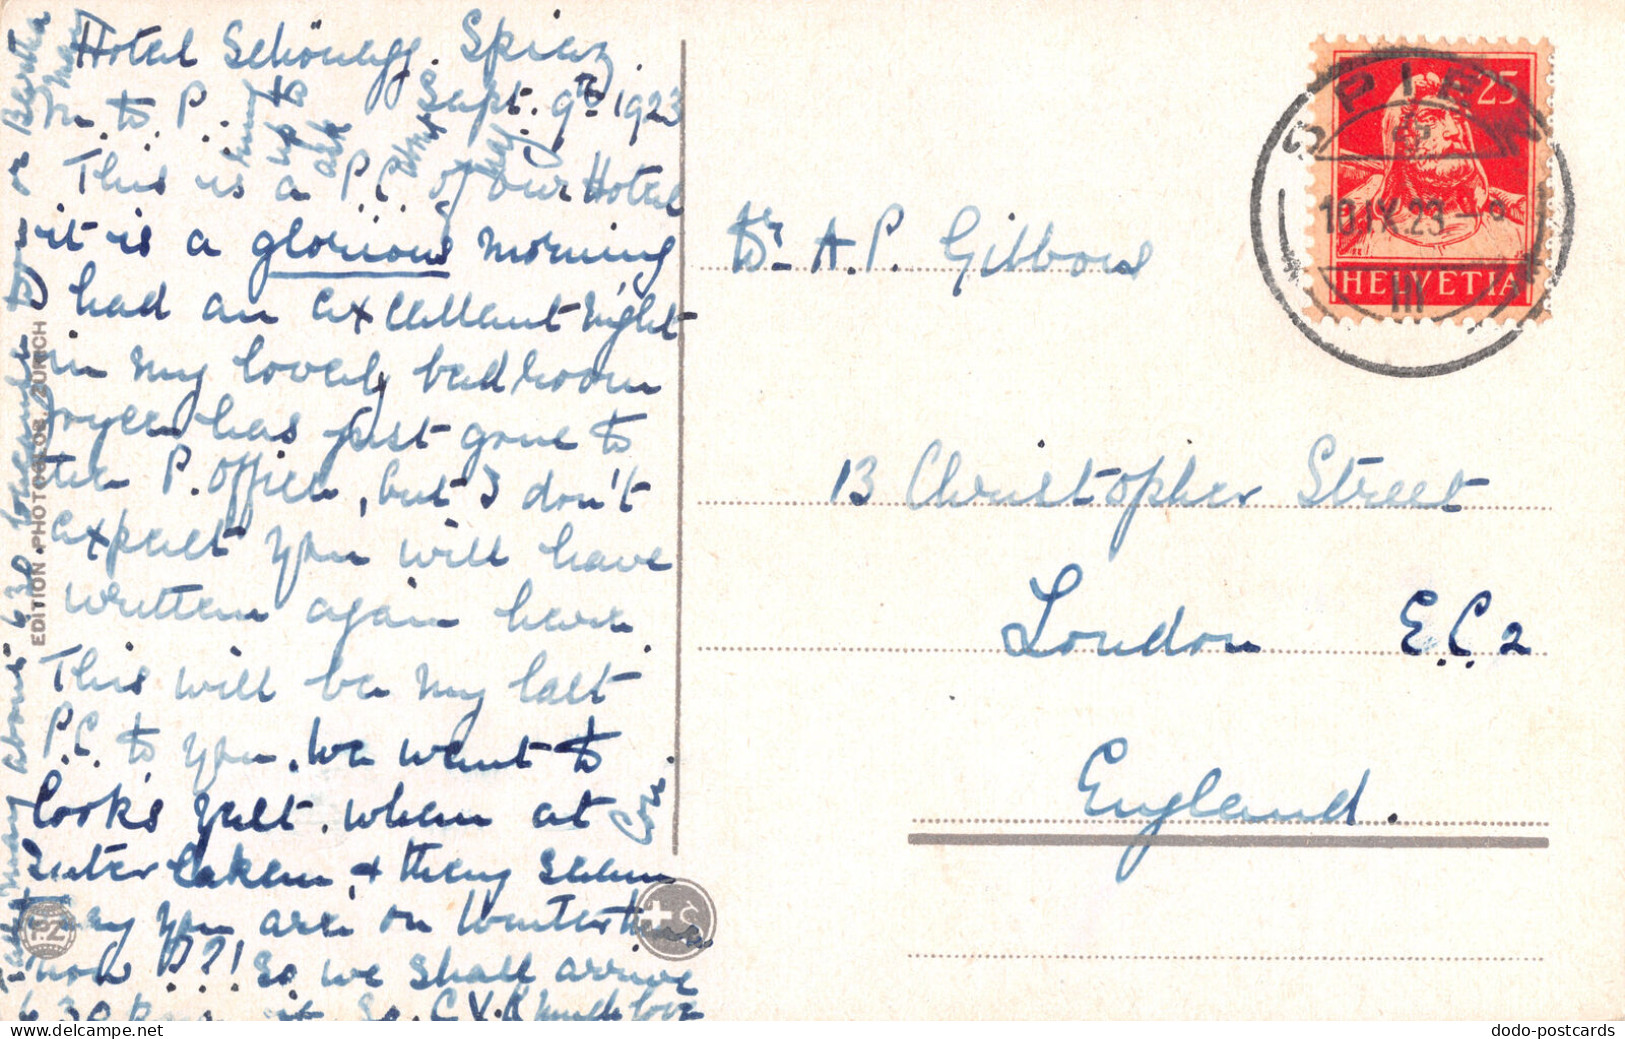 Hotel Schönegg. Spiez.
M. to P. Sept. 9th 1923
This is a P.C. of our Hotel
it is a glorious morning
had an excellent night
in my lovely bedroom
has just gone to
the P. Office, but I don't
expect you will have
written again here.
This will be my last
P.C. to you. We went to
Cook's yest. when at
Interlaken, & they seem
say you are on Winter time
now P??! So we shall arrive
6.30 at
much love
or Bertha
May
up to
ask
about 6.30
EDITION PHOTOGLOB, ZÜRICH
P.Z
A.P. Gibbons
13 Christopher Street
London E.C.2
England.
25
HELVETIA
SPIEZ
10.IX.23-9
III
dodo-postcards